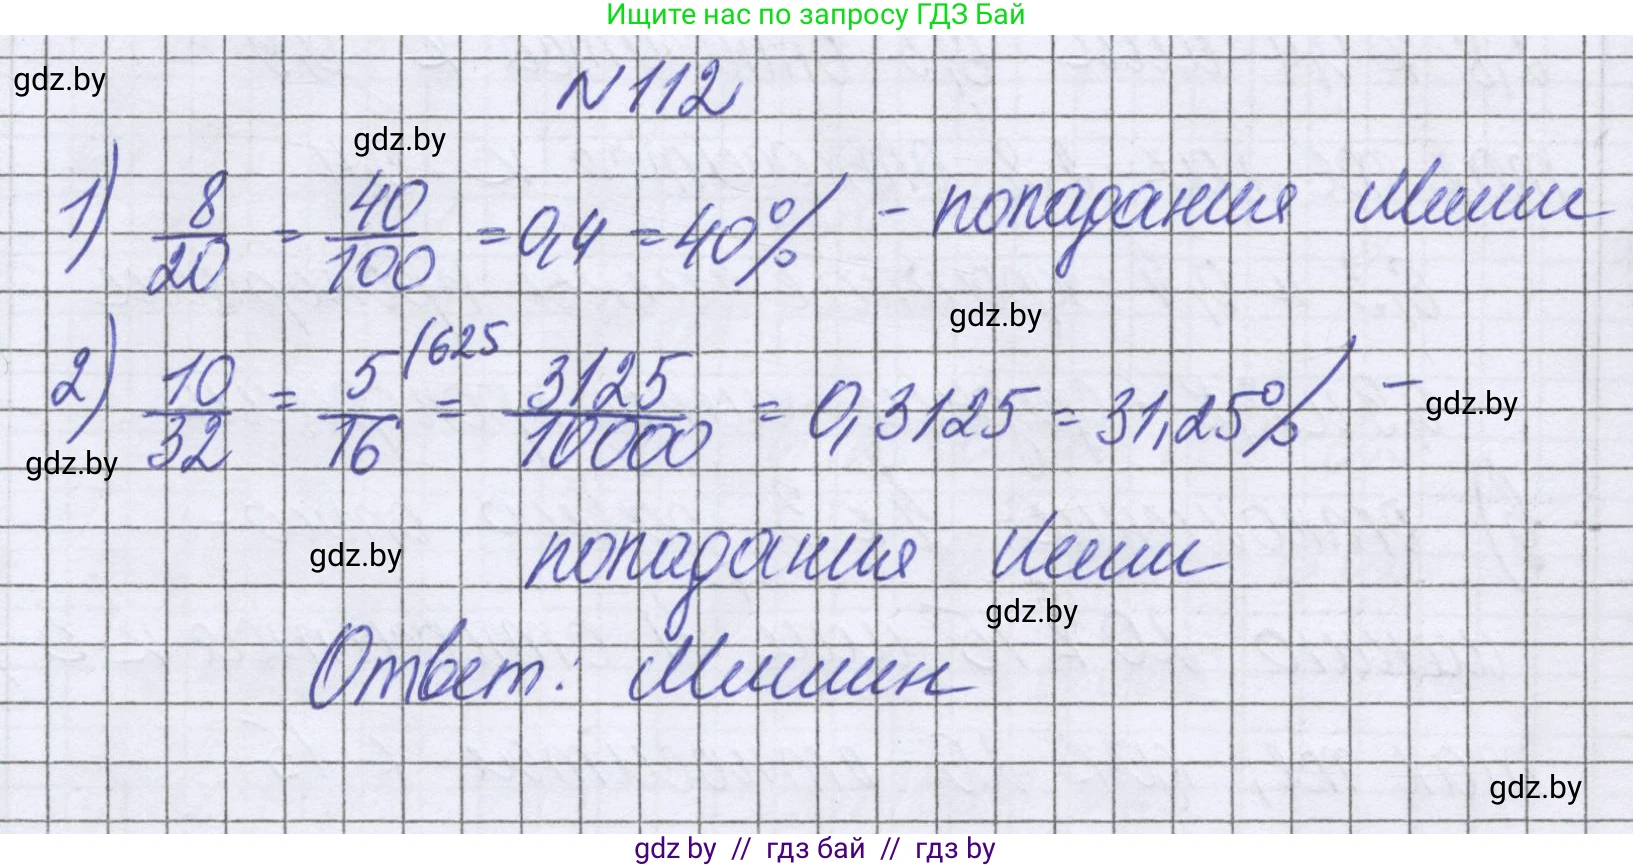 Ищите нас по запросу ГДЗ Бай
gdz.by
N 112
gdz.by
1) 8/20 = 40/100 = 0,4 = 40% - попадания Миши
gdz.by
2) 10/32 = 5/16 (625 = 3125/10000 = 0,3125 = 31,25% -
gdz.by
gdz.by
попадания Илии
gdz.by
gdz.by
Ответ: Мишин
gdz.by
gdz by // гдз бай // гдз by